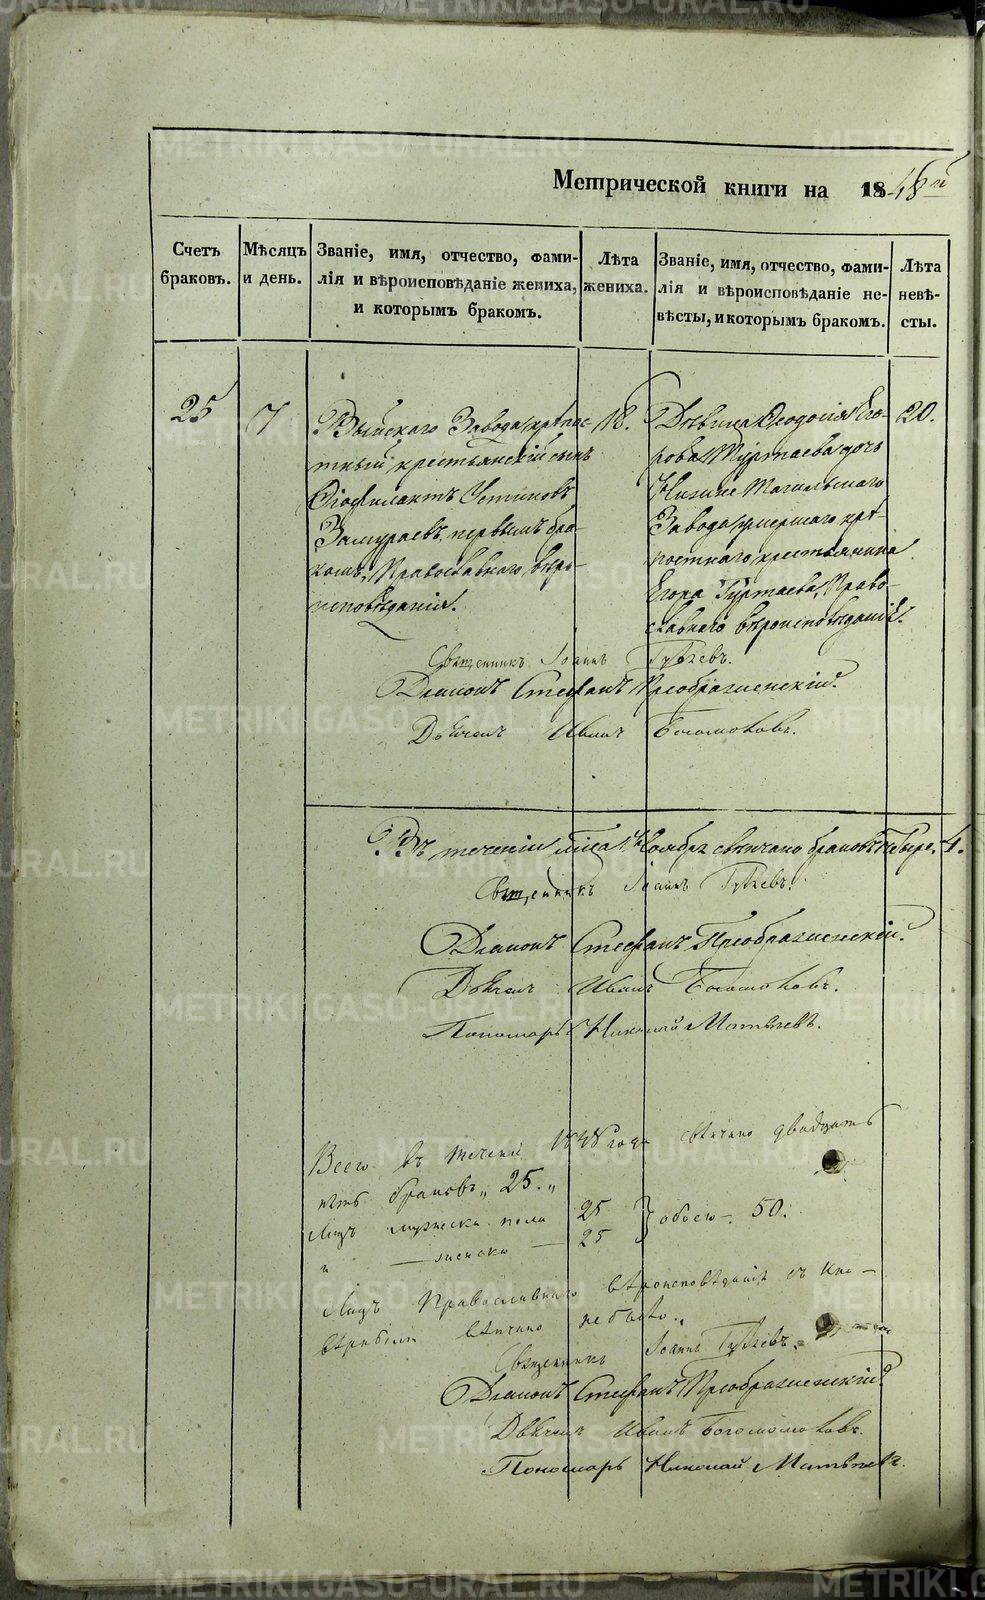 METRIKI.GASO-URAL.RU
Метрической книги на 1848й
Счетъ браковъ.
Мѣсяцъ и день.
Званіе, имя, отчество, фами-
лія и вѣроисповѣданіе жениха,
и которымъ бракомъ.
Лѣта
жениха.
Званіе, имя, отчество, фами-
лія и вѣроисповѣданіе не-
вѣсты, и которымъ бракомъ.
Лѣта
невѣ-
сты.
25
7
Выйскаго Завода крѣпос
тный крестьянскій сынъ
Ѳеофилактъ Устиновъ
Замураевъ, первымъ бра
комъ, Православнаго вѣро-
исповѣданія.
18.
Дѣвица Ѳеодосія Его-
рова Туртаева дочь
Нижне Тагильскаго
Завода умершаго крѣ-
постнаго крестьянина
Егора Туртаева, Право-
славнаго вѣроисповѣданія.
20.
Священникъ Іоаннъ
Діаконъ Стефанъ Преображенскій.
Дьячекъ Иванъ Богомоловъ.
Въ теченіи м-ца Ноября свѣнчано браковъ четыре. 4.
Священникъ Іоаннъ
Діаконъ Стефанъ Преображенскій.
Дьячекъ Иванъ Богомоловъ.
Пономарь Николай Матвѣевъ.
Всего въ теченіи 1848 года свѣнчано двадцать
пять браковъ „25.„
Лицъ мужеска пола 25
— женска — 25
обоего —. 50.
Лицъ Православнаго вѣроисповѣданія съ ино-
вѣрными вѣнчано не было.
Священникъ Іоаннъ
Діаконъ Стефанъ Преображенскій.
Дьячекъ Иванъ Богомоловъ.
Пономарь Николай Матвѣевъ.